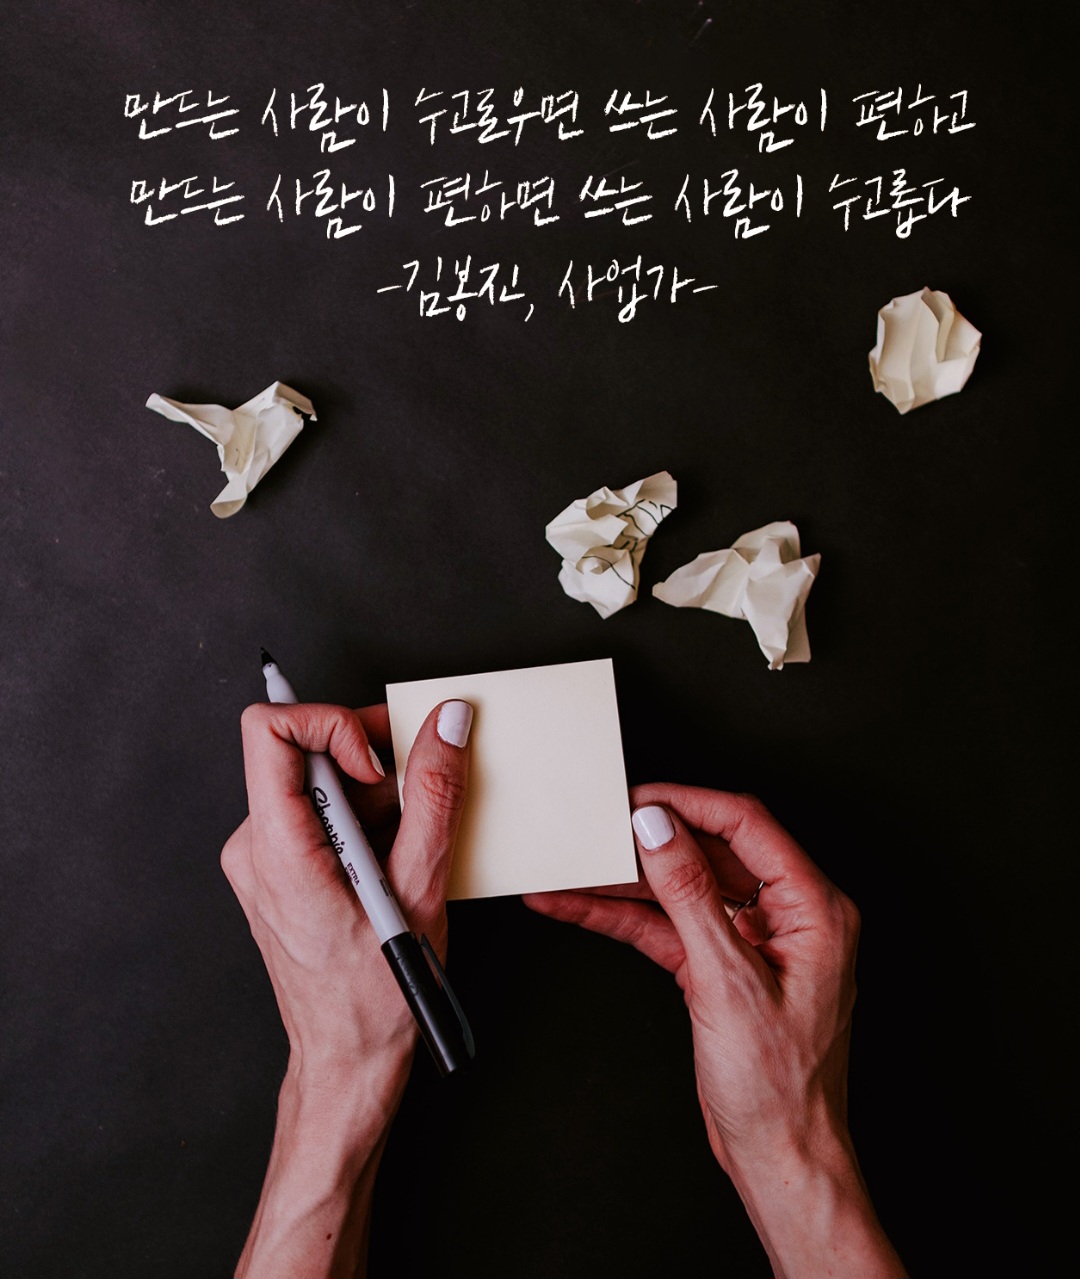 만드는 사람이 수고로우면 쓰는 사람이 편하고
만드는 사람이 편하면 쓰는 사람이 수고롭다
-김봉진, 사업가-
Sharpie
EXTRA